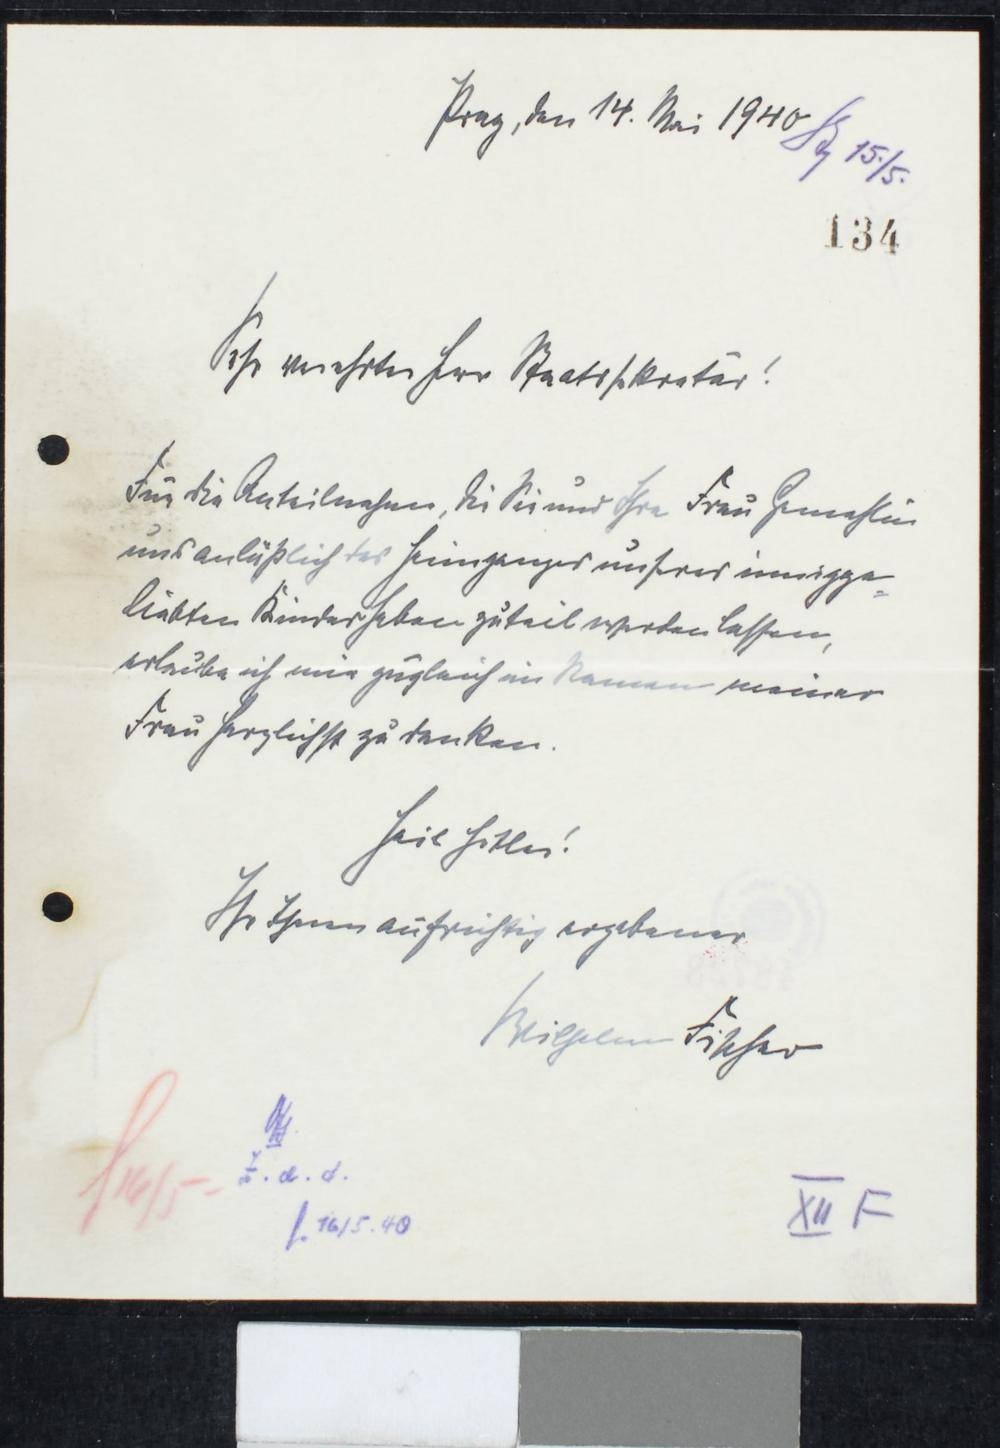 Prag, den 14. Mai 1940
15./5.
134
Sehr verehrter Herr Staatssekretär!
Für die Anteilnahme, die Sie und Ihre Frau Gemahlin
uns anläßlich des Heimganges unseres innigge-
liebten Kindes haben zuteil werden lassen,
erlaube ich mir zugleich im Namen meiner
Frau herzlichst zu danken.
Heil Hitler!
Ihr Ihnen aufrichtig ergebener
Wilhelm Fischer
16/5
z. d. A.
16/5.40
XII F